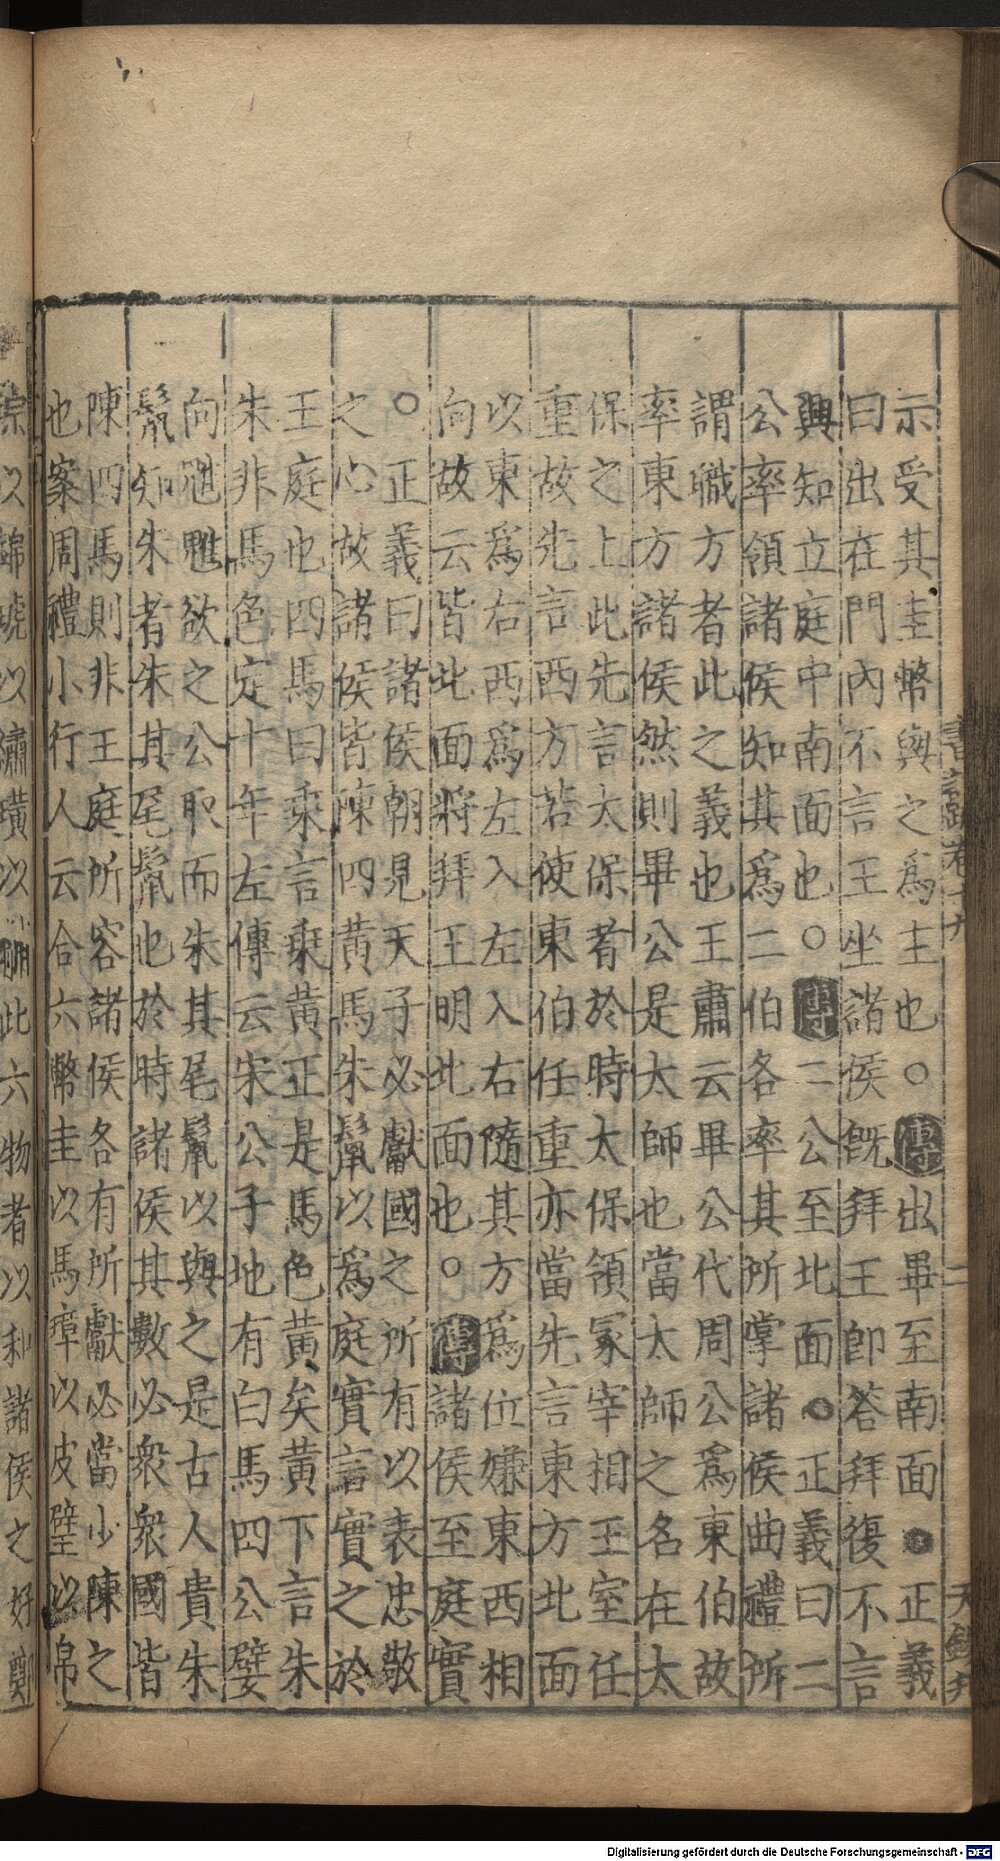 示受其圭幣與之為主也○傳出畢至南面●正義
曰出在門內不言王坐諸侯既拜王即荅拜復不言
興知立庭中南面也○傳二公至北面○正義曰二
公率領諸侯知其為二伯各率其所掌諸侯曲禮所
謂職方者此之義也王肅云畢公代周公為東伯故
率東方諸侯然則畢公是太師也當太師之名在太
保之上此先言太保者於時太保領冢宰相王室任
重故先言西方若使東伯任重亦當先言東方北面
以東為右西為左入左入右隨其方為位嫌東西相
向故云皆北面將拜王明北面也○傳諸侯至庭實
○正義曰諸侯朝見天子必獻國之所有以表忠敬
之心故諸侯皆陳四黃馬朱鬣以為庭實言實之於
王庭也四馬曰乘言乘黃正是馬色黃矣黃下言朱
朱非馬色定十年左傳云宋公子地有白馬四公嬖
向魋魋欲之公取而朱其尾鬣以與之是古人貴朱
鬣知朱者朱其尾鬣也於時諸侯其數必衆衆國皆
陳四馬則非王庭所容諸侯各有所獻必當少陳之
也案周禮小行人云合六幣圭以馬璋以皮璧以帛
琮以錦琥以繡璜以黼此六物者以和諸侯之好鄭
書疏卷十九
二
Digitalisierung gefördert durch die Deutsche Forschungsgemeinschaft - DFG